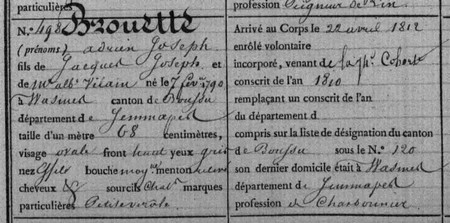 particulières
profession Seigneur de vin
N.° 498 Brouette
(prénoms) adrien Joseph
fils de Jacques Joseph et
de Mie albe Vilain né le 7 fevr 1790
à Wasmes canton de Boussu
département de Jemmapes
taille d'un mètre 68 centimètres,
visage ovale front haut yeux gris
nez effilé bouche moy. menton
cheveux & sourcils Chat. marques
particulières Petite verole
Arrivé au Corps le 22 avril 1812
enrôlé volontaire
incorporé, venant de la 14e Cohorte
conscrit de l'an 1810
remplaçant un conscrit de l'an
du département d
compris sur la liste de désignation du canton
de Boussu sous le N.° 120
son dernier domicile était à Wasmes
département de Jemmapes
profession de Charbonnier